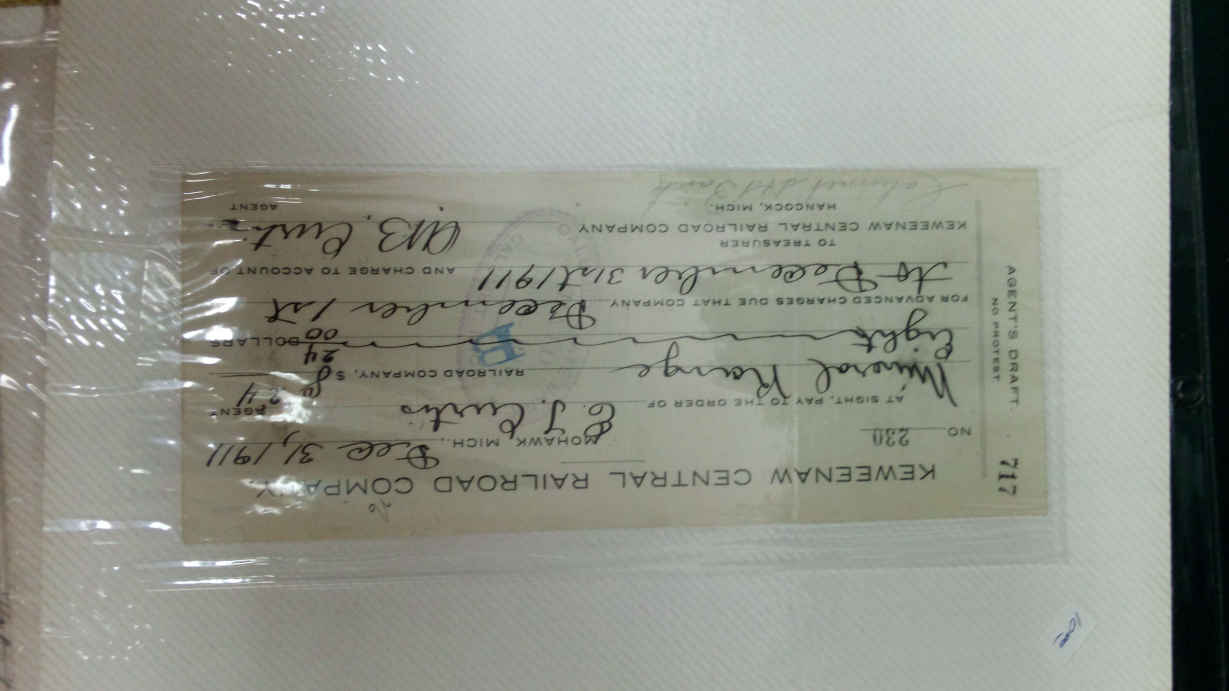 KEWEENAW CENTRAL RAILROAD COMPANY
NO. 230
MOHAWK, MICH., Dec 31, 1911
AT SIGHT, PAY TO THE ORDER OF E. J. Curtis AGENT
Mineral Range RAILROAD COMPANY, $ 8 24
Eight 24/00 DOLLARS
FOR ADVANCED CHARGES DUE THAT COMPANY December 1st
to December 31st 1911 AND CHARGE TO ACCOUNT OF
TO TREASURER
KEWEENAW CENTRAL RAILROAD COMPANY
HANCOCK, MICH.
Curtis
AGENT
AGENT'S DRAFT. 717
NO PROTEST